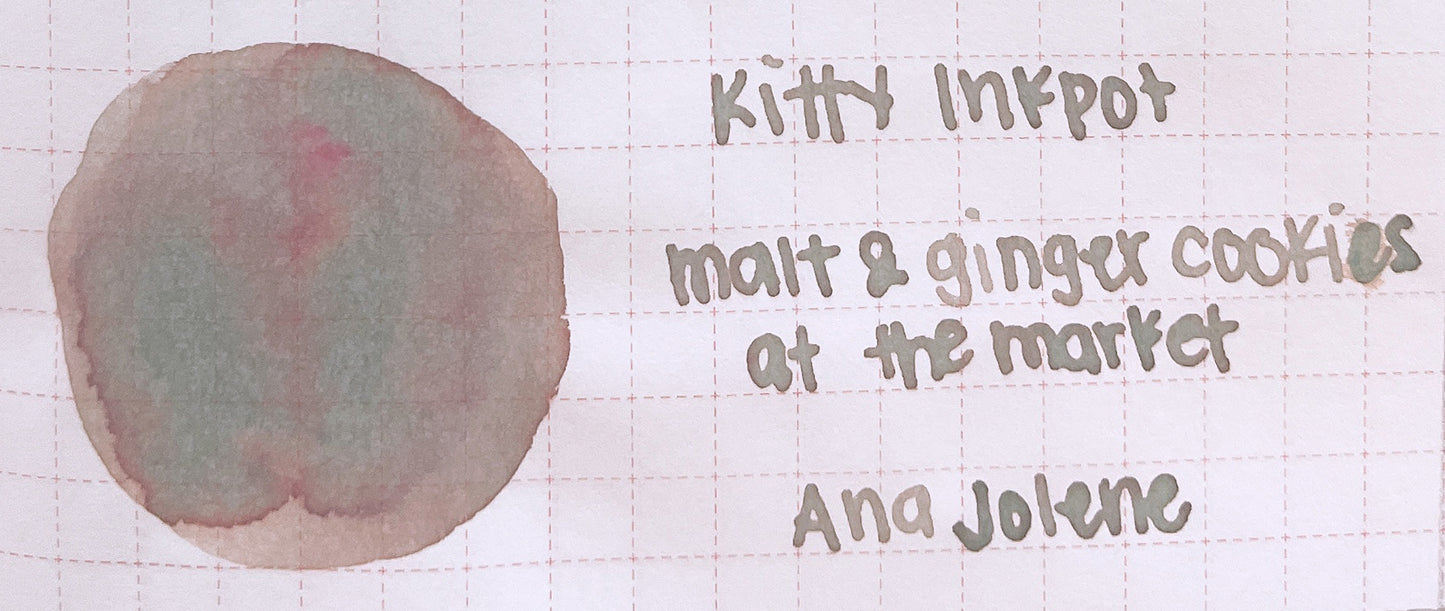 Kitty Inkpot
malt & ginger cookies
at the market
Ana Jolene